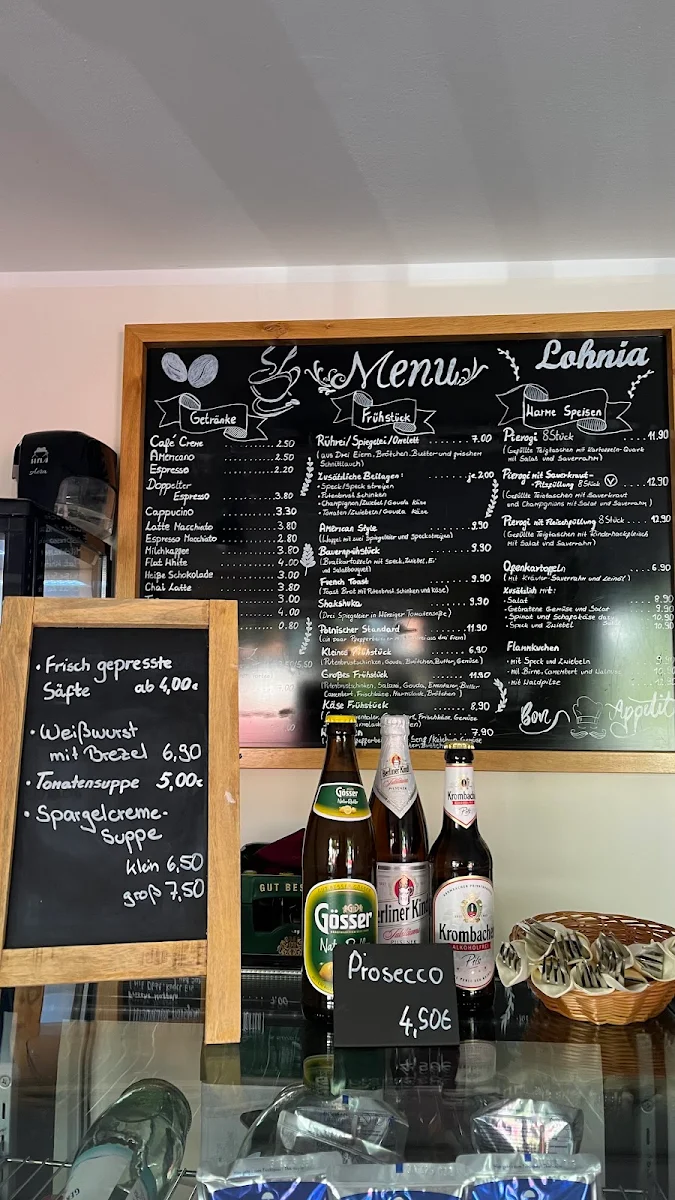 Menu
Lohnia
Getränke
Café Creme 2.50
Americano 2.50
Espresso 2.20
Doppelter
Espresso 3.80
Cappucino 3.30
Latte Macchiato 3.80
Espresso Macchiato 2.80
Milchkaffee 3.80
Flat White 4.00
Heiße Schokolade 3.00
Chai Latte 3.80
3.00
4.00
0.80
Frühstück
Rührei/Spiegelei/Omelett 7.00
(aus Drei Eiern, Brötchen, Butter und frischem
Schnittlauch)
Zusätzliche Beilagen: je 2.00
- Speck/Speck streifen
- Putenbrust Schinken
- Champignon/Zwiebel/Gouda Käse
- Tomaten/Zwiebeln/Gouda Käse
American Style 9.90
(Wuppel mit zwei Spiegeleier und Speckstreifen)
Bauernfrühstück 9.90
(Bratkartoffeln mit Speck, Zwiebel, Ei
und Salatbouquet)
French Toast 9.90
(Toast Brot mit Putenbrust Schinken und Käse)
Shakshuka 9.90
(Drei Spiegeleier in Würziger Tomatensoße)
Polnischer Standard 11.90
Kleines Frühstück 6.90
(Putenbrustschinken, Gouda, Brötchen, Butter, Gemüse)
Großes Frühstück 11.90
(Putenbrustschinken, Salami, Gouda, Emmentaler, Butter
Camembert, Frischkäse, Marmelade, Brötchen)
Käse Frühstück 8.90
Frischkäse, Gemüse
7.90
Warme Speisen
Pierogi 8 Stück 11.90
(Gefüllte Teigtaschen mit Kartoffeln-Quark
mit Salat und Sauerrahm)
Pierogi mit Sauerkraut-
Pilzfüllung 8 Stück V 12.90
(Gefüllte Teigtaschen mit Sauerkraut
und Champignons mit Salat und Sauerrahm)
Pierogi mit Fleischfüllung 8 Stück 13.90
(Gefüllte Teigtaschen mit Rinderhackfleisch
mit Salat und Sauerrahm)
Ofenkartoffeln 6.90
(mit Kräuter-Sauerrahm und Leinöl)
Zusätzlich mit:
- Salat 8,90
- Gebratene Gemüse und Salat 9,90
- Spinat und Schafskäse 10,90
- Speck und Zwiebel 10,90
Flammkuchen
- mit Speck und Zwiebeln
- mit Birne, Camembert und
- mit Waldpilze
Bon Appetit
• Frisch gepresste
Säfte ab 4,00€
• Weißwurst
mit Brezel 6,90
• Tomatensuppe 5,00€
• Spargelcreme-
suppe
klein 6,50
groß 7,50
GUT BES
Gösser
NaturRadler
Gösser
Berliner Kindl
PILSENER
Berliner Kindl
Jubiläums
PILSENER
Krombacher
Pils
Krombacher
ALKOHOLFREI
Pils
Prosecco
4,50€